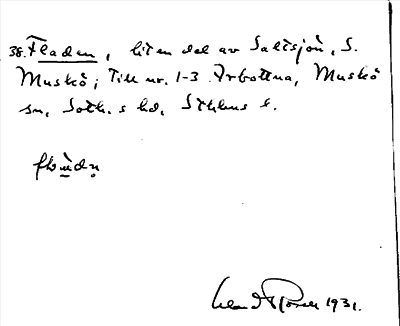 38. Fladen, liten del av Saltsjön, S.
Muskö; Till nr. 1-3 Arbottna, Muskö
sn, Soth.s hd, Sthlms l.
1931.